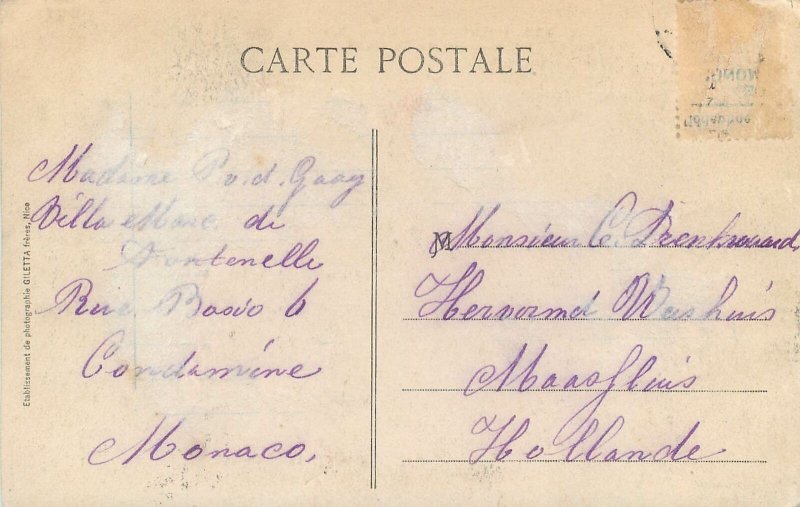 CARTE POSTALE
Madame P. v. d. Gaag
Villa Marc de
Fontenelle
Rue Bosio 6
Condamine
Monaco.
Monsieur C.
Hervormd Weeshuis
Maassluis
Hollande
Etablissement de photographie GILETTA frères, Nice